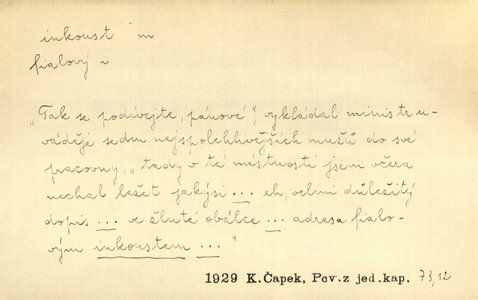 inkoust m
fialový ~
„Tak se podívejte, pánové", vykládal ministr u-
váděje sedm nejspolehlivějších mužů do své
pracovny, „tady v té místnosti jsem včera
nechal ležet jakýsi ... eh, velmi důležitý
dopis ... ve žluté obálce ... adresa fialo-
vým inkoustem ..."
1929 K.Čapek, Pov.z jed.kap. 73,12